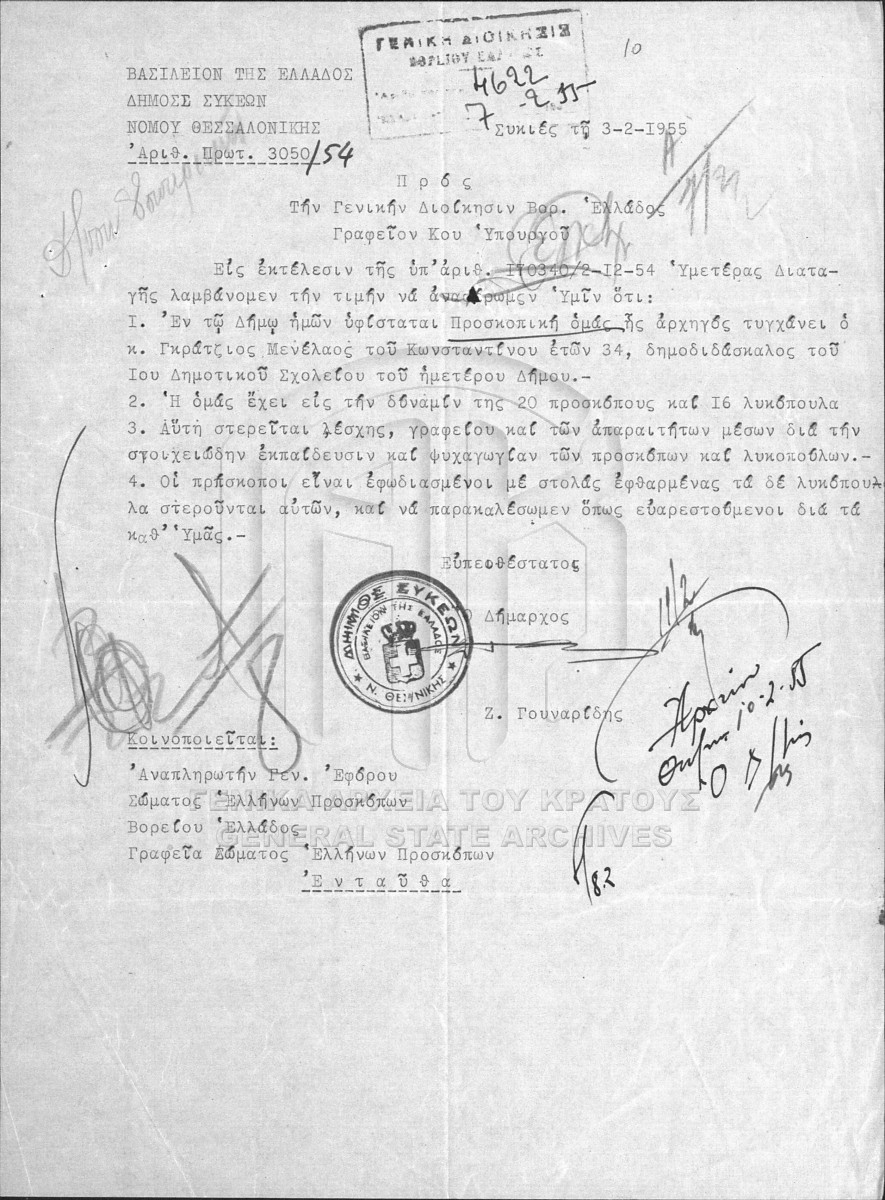 10
ΓΕΝΙΚΗ ΔΙΟΙΚΗΣΙΣ
ΒΟΡΕΙΟΥ ΕΛΛΑΔΟΣ
4622
7 -2-55
ΒΑΣΙΛΕΙΟΝ ΤΗΣ ΕΛΛΑΔΟΣ
ΔΗΜΟΣΣ ΣΥΚΕΩΝ
ΝΟΜΟΥ ΘΕΣΣΑΛΟΝΙΚΗΣ
Συκιές τῇ 3-2-I955
Ἀριθ. Πρωτ. 3050/54
Πρός
Τήν Γενικήν Διοίκησιν Βορ. Ἑλλάδος
Γραφεῖον Κου Ὑπουργοῦ
Εἰς ἐκτέλεσιν τῆς ὑπ'ἀριθ. I70340/2-I2-54 Ὑμετέρας Διατα-
γῆς λαμβάνομεν τήν τιμήν νά ἀναφέρωμεν Ὑμῖν ὅτι:
I. Ἐν τῷ Δήμῳ ἡμῶν ὑφίσταται Προσκοπική ὁμάς ἧς ἀρχηγός τυγχάνει ὁ
κ. Γκράτζιος Μενέλαος τοῦ Κωνσταντίνου ἐτῶν 34, δημοδιδάσκαλος τοῦ
Iου Δημοτικοῦ Σχολείου τοῦ ἡμετέρου Δήμου.-
2. Ἡ ὁμάς ἔχει εἰς τήν δύναμίν της 20 προσκόπους καί I6 λυκόπουλα
3. Αὕτη στερεῖται λέσχης, γραφείου καί τῶν ἀπαραιτήτων μέσων διά τήν
στοιχειώδην ἐκπαίδευσιν καί ψυχαγωγίαν τῶν προσκόπων καί λυκοπούλων.-
4. Οἱ πρόσκοποι εἶναι ἐφωδιασμένοι μέ στολάς ἐφθαρμένας τά δέ λυκόπου
λα στεροῦνται αὐτῶν, καί νά παρακαλέσωμεν ὅπως εὐαρεστούμενοι διά τά
καθ' Ὑμᾶς.-
Εὐπειθέστατος
Ὁ Δήμαρχος
ΔΗΜΟΣ ΣΥΚΕΩΝ
ΒΑΣΙΛΕΙΟΝ ΤΗΣ ΕΛΛΑΔΟΣ
Ν. ΘΕΣ/ΝΙΚΗΣ
11/2
Ζ. Γουναρίδης
Ἀρχεῖον
10-2-55
Ὁ
Κοινοποιεῖται:
Ἀναπληρωτήν Γεν. Ἐφόρου
Σώματος Ἑλλήνων Προσκόπων
Βορείου Ἑλλάδος
Γραφεῖα Σώματος Ἑλλήνων Προσκόπων
Ἐνταῦθα
8.2
ΓΕΝΙΚΑ ΑΡΧΕΙΑ ΤΟΥ ΚΡΑΤΟΥΣ
GENERAL STATE ARCHIVES